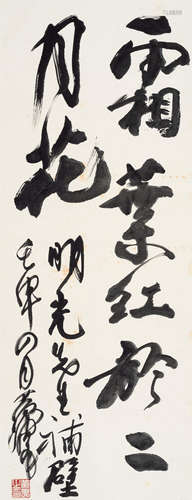 霜葉紅於二
月花
明光先生補壁
壬申四月